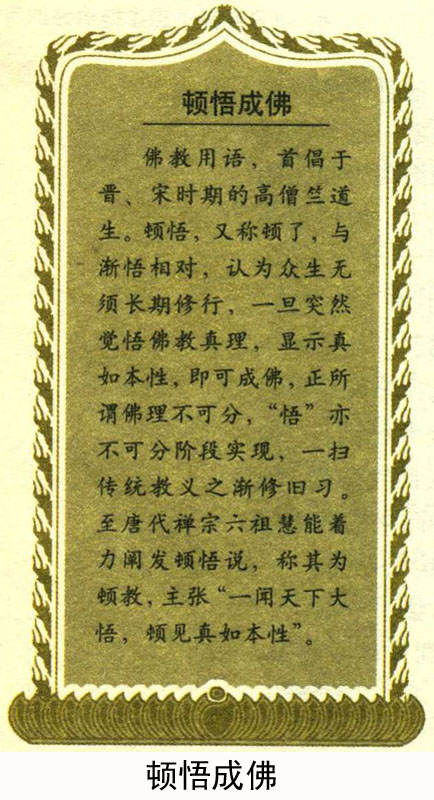 顿悟成佛
佛教用语，首倡于
晋、宋时期的高僧竺道
生。顿悟，又称顿了，与
渐悟相对，认为众生无
须长期修行，一旦突然
觉悟佛教真理，显示真
如本性，即可成佛，正所
谓佛理不可分，“悟”亦
不可分阶段实现，一扫
传统教义之渐修旧习。
至唐代禅宗六祖慧能着
力阐发顿悟说，称其为
顿教，主张“一闻天下大
悟，顿见真如本性”。
顿悟成佛